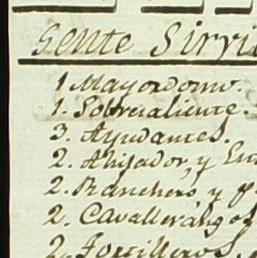 Gente Sirvi
1. Mayordomo.
1. Sobresaliente.
3. Ayudantes.
2. Ahijador, y En
2. Ranchero, y p
2. Cavallerangos
2. Tortilleros,